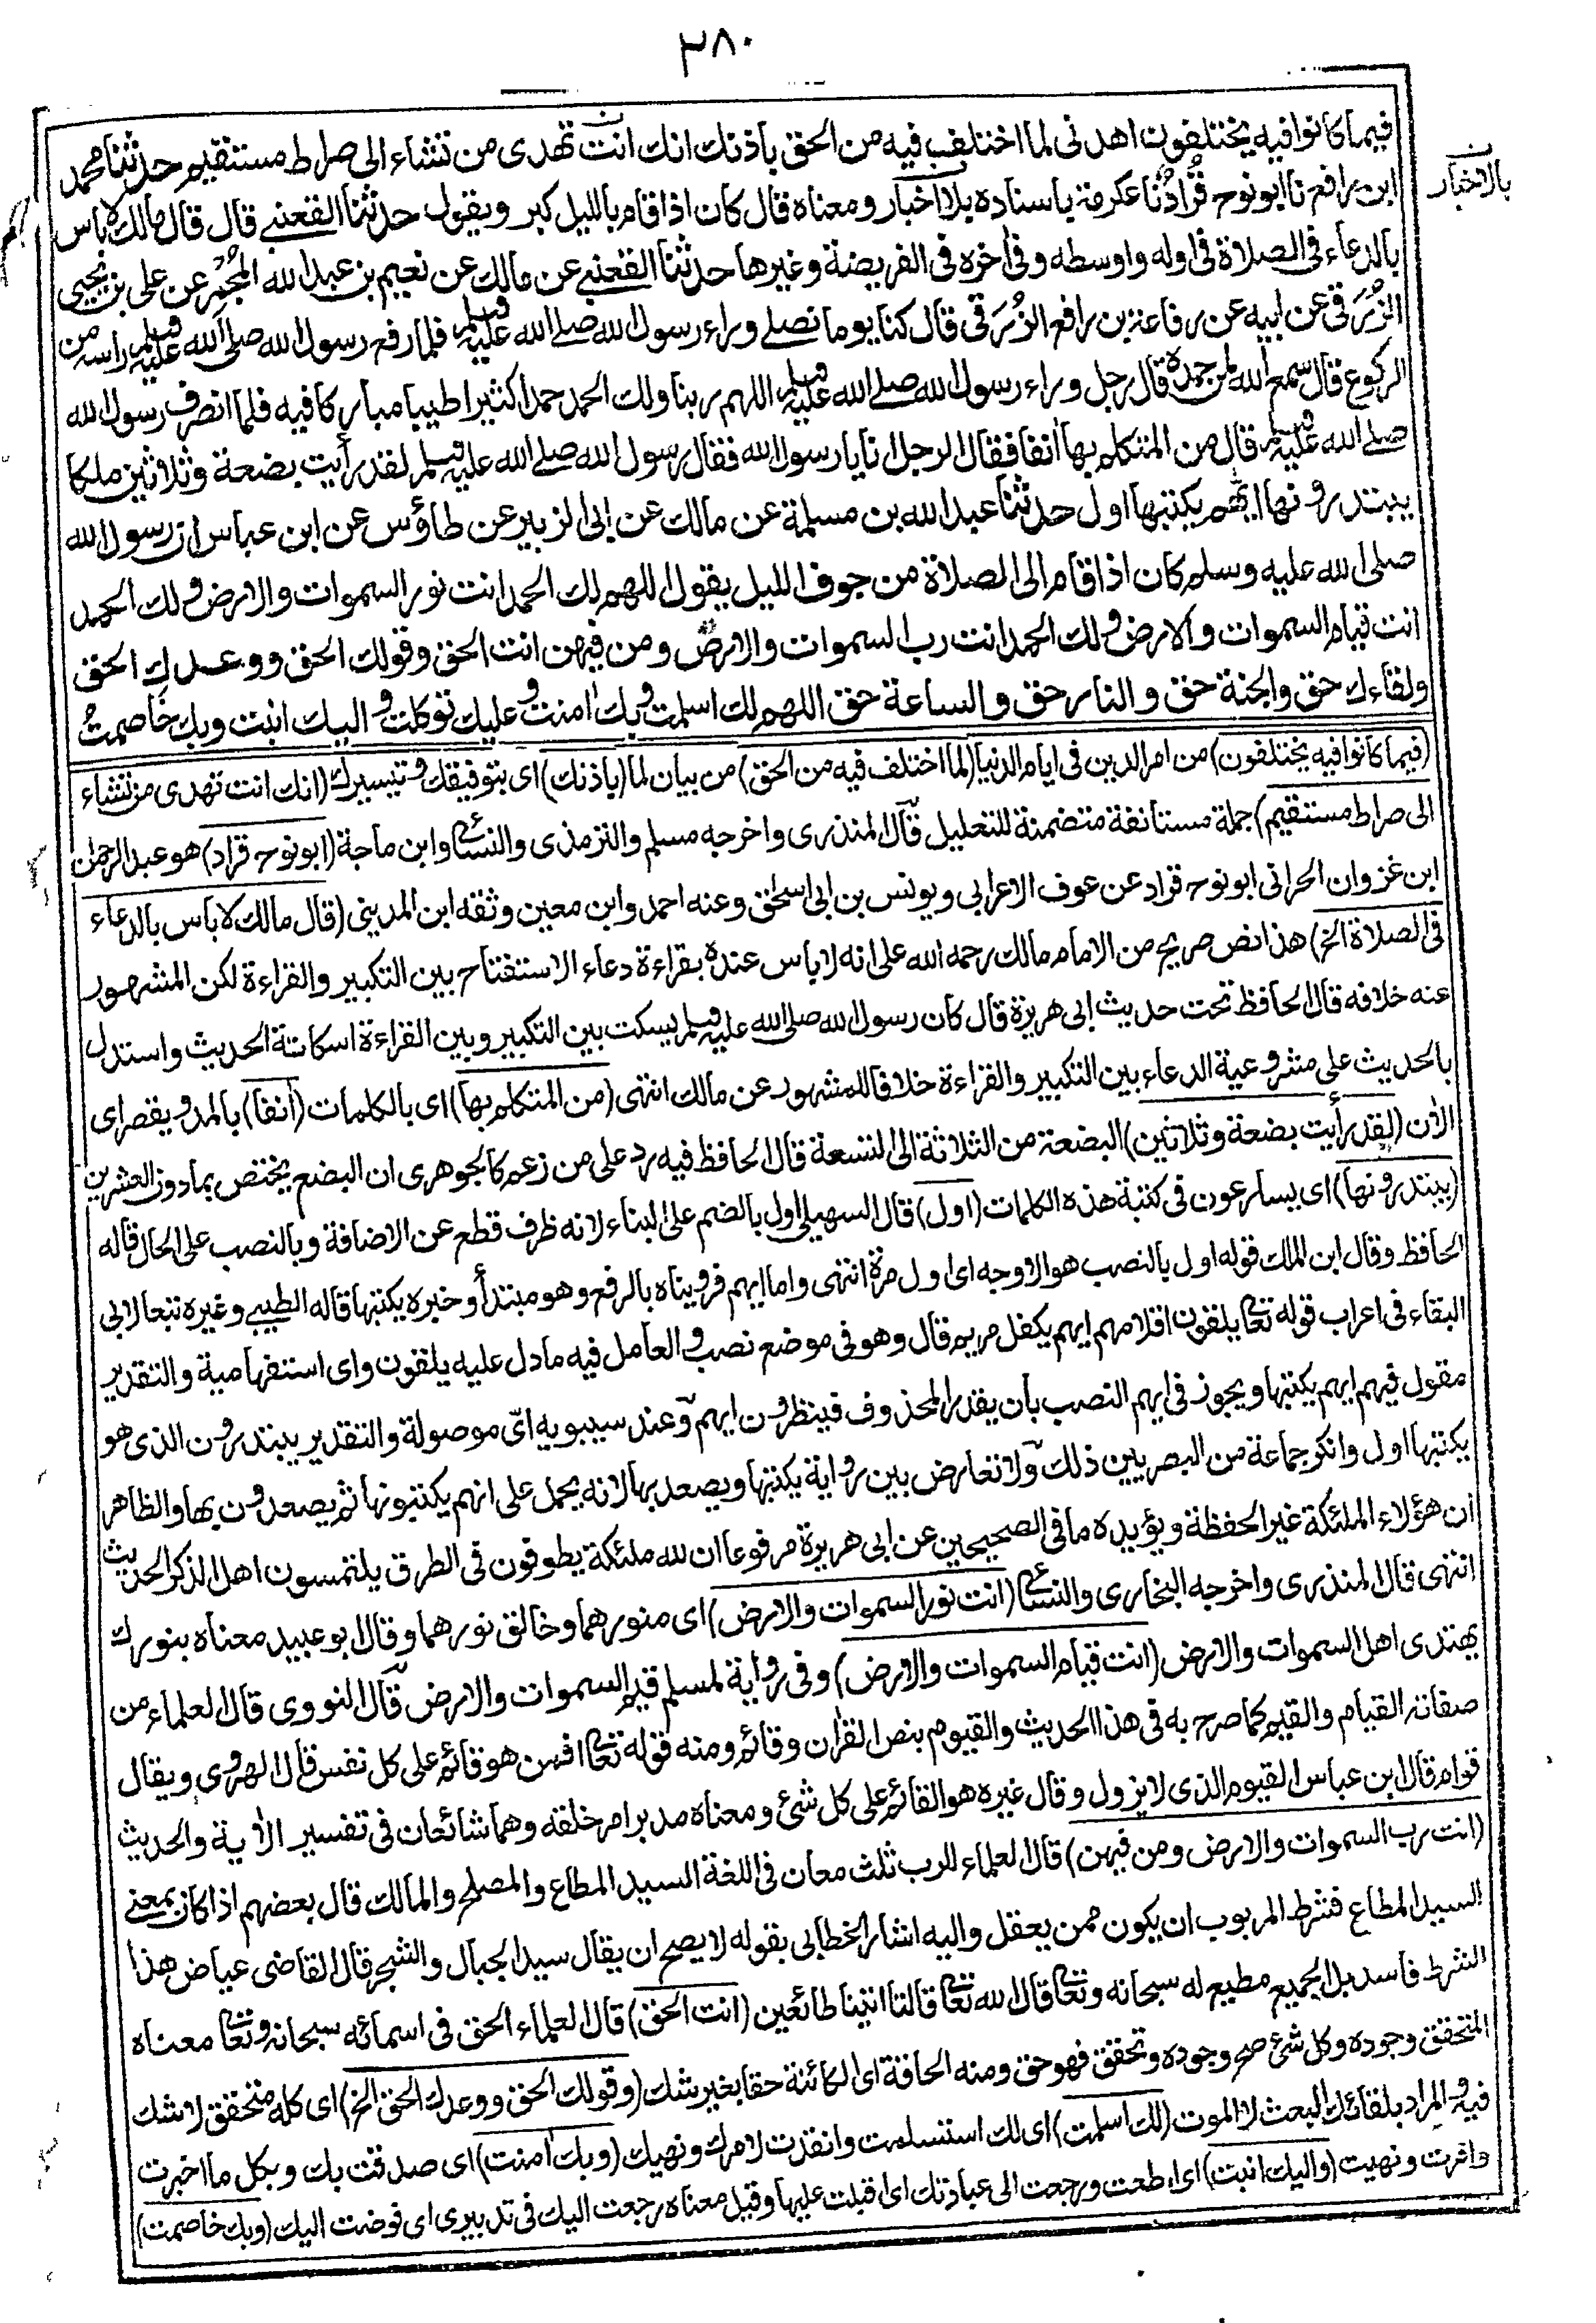 ٢٨٠
فيما كانوا فيه يختلفون اهدنى لما اختلف فيه من الحق باذنك انك انت تهدى من تشاء الى صراط مستقيم حدثنا محمد
بالاخبار
ابن رافع نا ابو نوح قُرادٌ نا عكرمة باسناده بلا اخبار ومعناه قال كان اذا قام بالليل كبر ويقول حدثنا القعنبے قال قال مالك لا باس
بالدعاء فى الصلاة فى اوله واوسطه وفى اٰخره فى الفريضة وغيرها حدثنا القعنبے عن مالك عن نعيم بن عبد الله المجمر عن على بن يحيى
الزُرَقى عن ابيه عن رفاعة بن رافع الزُرَقى قال كنا يوما نصلے وراء رسول الله صلے الله عليه وسلم فلما رفع رسول الله صلى الله عليه وسلم راسه من
الركوع قال سمع الله لمن حمده قال رجل وراء رسول الله صلے الله عليه وسلم اللهم ربنا ولك الحمد حمدا كثيرا طيبا مباركا فيه فلما انصرف رسول الله
صلے الله عليه وسلم قال من المتكلم بها اٰنفا فقال الرجل انا يا رسول الله فقال رسول الله صلے الله عليه وسلم لقد رأيت بضعة وثلاثين ملكا
يبتدرونها ايهم يكتبها اول حدثنا عبد الله بن مسلمة عن مالك عن ابى الزبير عن طاؤس عن ابن عباس ان رسول الله
صلى الله عليه وسلم كان اذا قام الى الصلاة من جوف الليل يقول اللهم لك الحمد انت نور السموات والارض ولك الحمد
انت قيام السموات والارض ولك الحمد انت رب السموات والارض ومن فيهن انت الحق وقولك الحق ووعدك الحق
ولقاءك حق والجنة حق والنار حق والساعة حق اللهم لك اسلمت وبك اٰمنت وعليك توكلت واليك انبت وبك خاصمتُ
(فيما كانوا فيه يختلفون) من امر الدين فى ايام الدنيا (لما اختلف فيه من الحق) من بيان لما (باذنك) اى بتوفيقك وتيسيرك (انك انت تهدى من تشاء
الى صراط مستقيم) جملة مستانفة متضمنة للتعليل قال المنذرى واخرجه مسلم والترمذى والنسائى وابن ماجة (ابو نوح قراد) هو عبد الرحمٰن
ابن غزوان الحرانى ابو نوح قراد عن عوف الاعرابى ويونس بن ابى اسحٰق وعنه احمد وابن معين وثقه ابن المدينى (قال مالك لا باس بالدعاء
فى الصلاة الخ) هذا نص صريح من الامام مالك رحمه الله على انه لا باس عنده بقراءة دعاء الاستفتاح بين التكبير والقراءة لكن المشهور
عنه خلافه قال الحافظ تحت حديث ابى هريرة قال كان رسول الله صلى الله عليه وسلم يسكت بين التكبير وبين القراءة اسكاتة الحديث واستدل
بالحديث على مشروعية الدعاء بين التكبير والقراءة خلافا للمشهور عن مالك انتهى (من المتكلم بها) اى بالكلمات (اٰنفا) بالمد ويقصر اى
الاٰن (لقد رأيت بضعة وثلاثين) البضعة من الثلاثة الى التسعة قال الحافظ فيه رد على من زعم كالجوهرى ان البضع يختص بما دون العشرين
(يبتدرونها) اى يسارعون فى كتبة هذه الكلمات (اول) قال السهيلى اول بالضم على البناء لانه ظرف قطع عن الاضافة وبالنصب على الحال قاله
الحافظ وقال ابن الملك قوله اول بالنصب هو الاوجه اى اول مرة انتهى واما ايهم فرويناه بالرفع وهو مبتدأ وخبره يكتبها قاله الطيبے وغيره تبعا لابى
البقاء فى اعراب قوله تعالى يلقون اقلامهم ايهم يكفل مريم قال وهو فى موضع نصب والعامل فيه ما دل عليه يلقون واى استفهامية والتقدير
مقول فيهم ايهم يكتبها ويجوز فى ايهم النصب بأن يقدر المحذوف فينظرون ايهم وعند سيبويه اىّ موصولة والتقدير يبتدرون الذى هو
يكتبها اول وانكر جماعة من البصريين ذلك ولا تعارض بين رواية يكتبها ويصعد بها لانه يحمل على انهم يكتبونها ثم يصعدون بها والظاهر
ان هؤلاء الملٰئكة غير الحفظة ويؤيده ما فى الصحيحين عن ابى هريرة مرفوعا ان لله ملٰئكة يطوفون فى الطرق يلتمسون اهل الذكر الحديث
انتهى قال المنذرى واخرجه البخارى والنسائى (انت نور السموات والارض) اى منورهما وخالق نورهما وقال ابو عبيد معناه بنورك
يهتدى اهل السموات والارض (انت قيام السموات والارض) وفى رواية لمسلم قيم السموات والارض قال النووى قال العلماء من
صفاته القيام والقيم كما صرح به فى هذا الحديث والقيوم بنص القراٰن وقائم ومنه قوله تعالى افمن هو قائم على كل نفس قال الهروى ويقال
قوام قال ابن عباس القيوم الذى لا يزول وقال غيره هو القائم على كل شئ ومعناه مدبر امر خلقه وهما شائعان فى تفسير الاٰية والحديث
(انت رب السموات والارض ومن فيهن) قال العلماء للرب ثلث معان فى اللغة السيد المطاع والمصلح والمالك قال بعضهم اذا كان بمعنے
السيد المطاع فشرط المربوب ان يكون ممن يعقل واليه اشار الخطابى بقوله لا يصح ان يقال سيد الجبال والشجر قال القاضى عياض هذا
الشرط فاسد بل الجميع مطيع له سبحانه وتعالى قال الله تعالى قالتا اتينا طائعين (انت الحق) قال العلماء الحق فى اسمائه سبحانه وتعالى معناه
المتحقق وجوده وكل شئ صح وجوده وتحقق فهو حق ومنه الحاقة اى الكائنة حقا بغير شك (وقولك الحق ووعدك الحق الخ) اى كله متحقق لا شك
فيه والمراد بلقائك البعث لا الموت (لك اسلمت) اى لك استسلمت وانقدت لامرك ونهيك (وبك اٰمنت) اى صدقت بك وبكل ما اخبرت
وامرت ونهيت (واليك انبت) اى اطعت ورجعت الى عبادتك اى اقبلت عليها وقيل معناه رجعت اليك فى تدبيرى اى فوضت اليك (وبك خاصمت)